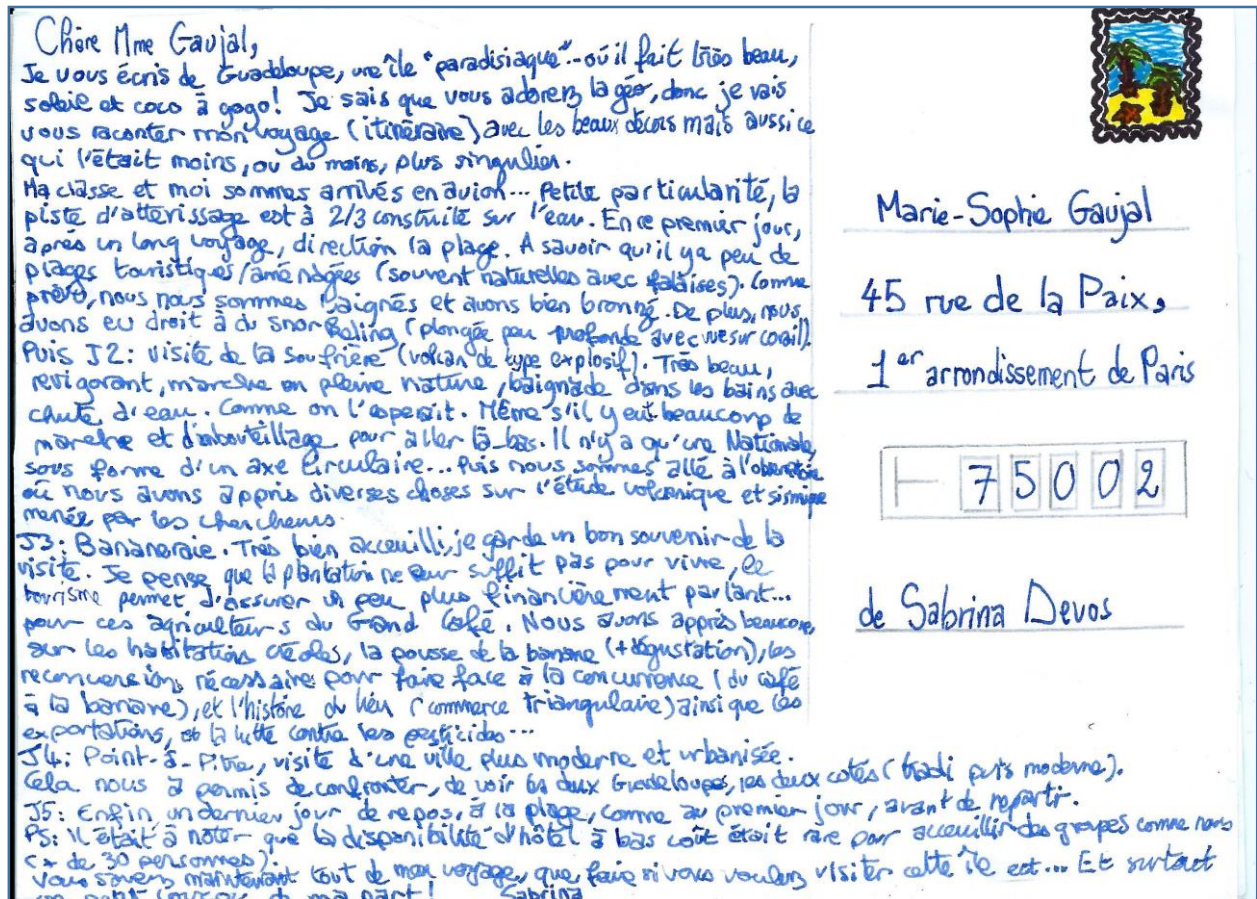 Chère Mme Gaujal,
Je vous écris de Guadeloupe, une île "paradisiaque" - où il fait très beau,
soleil et coco à gogo! Je sais que vous adorez la géo, donc je vais
vous raconter mon voyage (itinéraire) avec les beaux décors mais aussi ce
qui l'était moins, ou du moins, plus singulier.
Ma classe et moi sommes arrivés en avion... Petite particularité, la
piste d'atterissage est à 2/3 construite sur l'eau. En ce premier jour,
après un long voyage, direction la plage. A savoir qu'il y a peu de
plages touristiques/aménagées (souvent naturelles avec falaises). Comme
prévu, nous nous sommes baignés et avons bien bronzé. De plus, nous
avons eu droit à du snorkeling (plongée peu profonde avec vue sur corail).
Puis J2: visite de la soufrière (volcan de type explosif). Très beau,
revigorant, marche en pleine nature, baignade dans les bains avec
chute d'eau. Comme on l'esperait. Même s'il y eut beaucoup de
marche et d'embouteillage pour aller là-bas. Il n'y a qu'une Nationale,
sous forme d'un axe circulaire... Puis nous sommes allé à l'observatoire
où nous avons appris diverses choses sur l'étude volcanique et sismique
menée par les chercheurs.
J3: Bananeraie. Très bien acceuilli, je garde un bon souvenir de la
visite. Je pense que la plantation ne leur suffit pas pour vivre, le
tourisme permet d'assurer un peu plus financièrement parlant...
pour ces agriculteurs du Grand Café. Nous avons appris beaucoup
sur les habitations créoles, la pousse de la banane (+dégustation), les
reconversions nécessaires pour faire face à la concurrence (du café
à la banane), et l'histoire du lieu (commerce triangulaire) ainsi que les
exportations, et la lutte contre les pesticides...
J4: Point-à-Pitre, visite d'une ville plus moderne et urbanisée.
Cela nous a permis de confronter, de voir les deux Guadeloupes, les deux cotés (tradi puis moderne).
J5: Enfin, un dernier jour de repos, à la plage, comme au premier jour, avant de repartir.
PS: Il était à noter que la disponibilité d'hôtel à bas coût était rare pour acceuillir des groupes comme nous
(+ de 30 personnes).
Vous savez maintenant tout de mon voyage, que faire si vous voulez visiter cette île est... Et surtout
de ma part! Sabrina
Marie-Sophie Gaujal
45 rue de la Paix,
1er arrondissement de Paris
75002
de Sabrina Devos